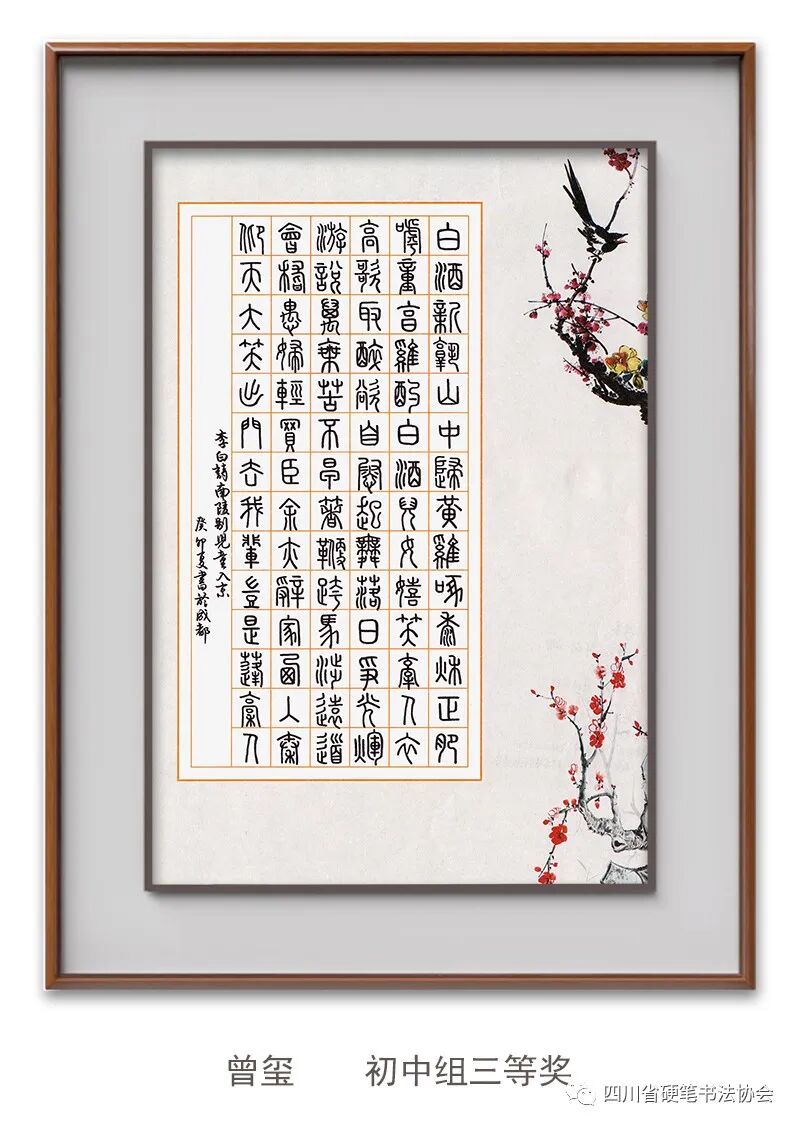 白酒新孰山中歸黃雞啄黍秋正肥
嘑童亯雞酌白酒兒女嬉笑牽人衣
高歌取醉欲自慰起舞落日爭光煇
游說萬乘苦不早著鞭跨馬涉遠道
會稽愚婦輕買臣余亦辭家西入秦
仰天大笑出門去我輩豈是蓬蒿人
李白詩南陵别兒童入京
癸卯夏書於成都
曾玺 初中组三等奖
四川省硬笔书法协会